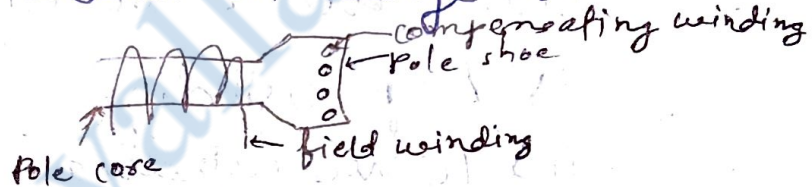 compensating winding
Pole shoe
field winding
Pole core